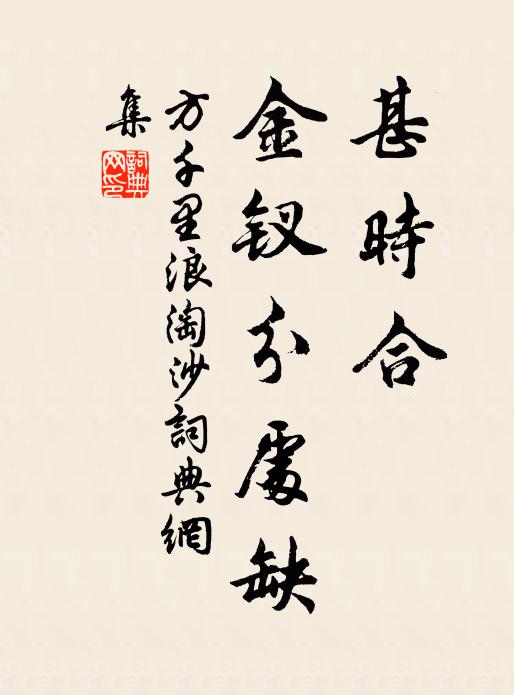 甚時合
金钗分處缺
方千里浪淘沙詞典網
集
詞典網印